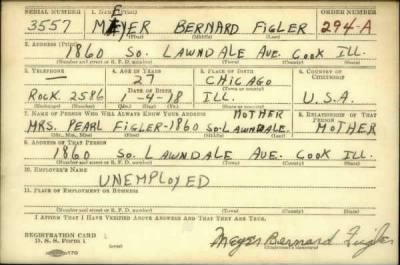 SERIAL NUMBER 1. NAME (Print) ORDER NUMBER
3557 MEYER BERNARD FIGLER 294-A
(First) (Middle) (Last)
2. ADDRESS (Print)
1860 So. LAWNDALE AVE. COOK ILL.
(Number and street or R. F. D. number) (Town) (County) (State)
3. TELEPHONE 4. AGE IN YEARS 5. PLACE OF BIRTH 6. COUNTRY OF CITIZENSHIP
27 CHICAGO
DATE OF BIRTH (Town or county)
ROCK. 2586 1-4-13 ILL. U.S.A.
(Exchange) (Number) (Mo.) (Day) (Yr.) (State or country)
7. NAME OF PERSON WHO WILL ALWAYS KNOW YOUR ADDRESS MOTHER 8. RELATIONSHIP OF THAT PERSON
MRS. PEARL FIGLER-1860 SO-LAWNDALE. MOTHER
(Mr., Mrs., Miss) (First) (Middle) (Last)
9. ADDRESS OF THAT PERSON
1860 SO. LAWNDALE AVE. COOK ILL.
(Number and street or R. F. D. number) (Town) (County) (State)
10. EMPLOYER'S NAME
UNEMPLOYED
11. PLACE OF EMPLOYMENT OR BUSINESS
(Number and street or R. F. D. number) (Town) (County) (State)
I AFFIRM THAT I HAVE VERIFIED ABOVE ANSWERS AND THAT THEY ARE TRUE.
REGISTRATION CARD
D. S. S. Form 1
Meyer Bernard Figler